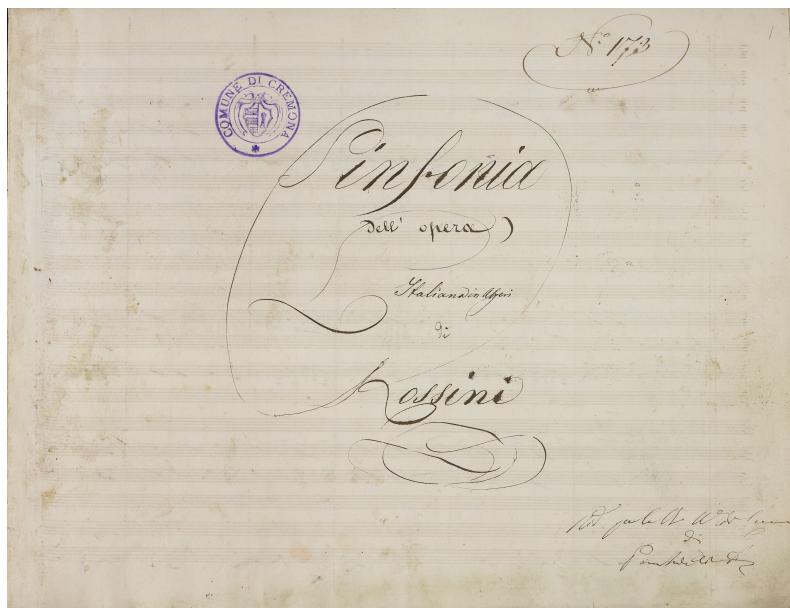 N.º 173
1
COMUNE DI CREMONA
Sinfonia
Dell' opera
Italiana in Algeri
di
Rossini
di